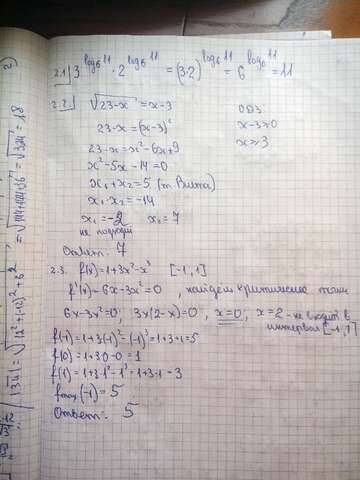 2.1] 3^{log₆11} · 2^{log₆11} = (3·2)^{log₆11} = 6^{log₆11} = 11
2.2] √(23-x) = x-3 ОДЗ
23-x = (x-3)² x-3≥0
23-x = x²-6x+9 x≥3
x²-5x-14=0
x₁+x₂=5 (т. Виета)
x₁·x₂=-14
x₁=-2 x₂=7
не подходит
Ответ: 7
2.3. f(x)=1+3x²-x³ [-1,1]
f'(x)=6x-3x²=0, найдем критические точки
6x-3x²=0; 3x(2-x)=0, x=0; x=2 - не входит в
интервал [-1,1]
f(-1)=1+3(-1)²-(-1)³=1+3+1=5
f(0)=1+3·0-0=1
f(1)=1+3·1²-1³=1+3-1=3
f max (-1)=5
Ответ: 5